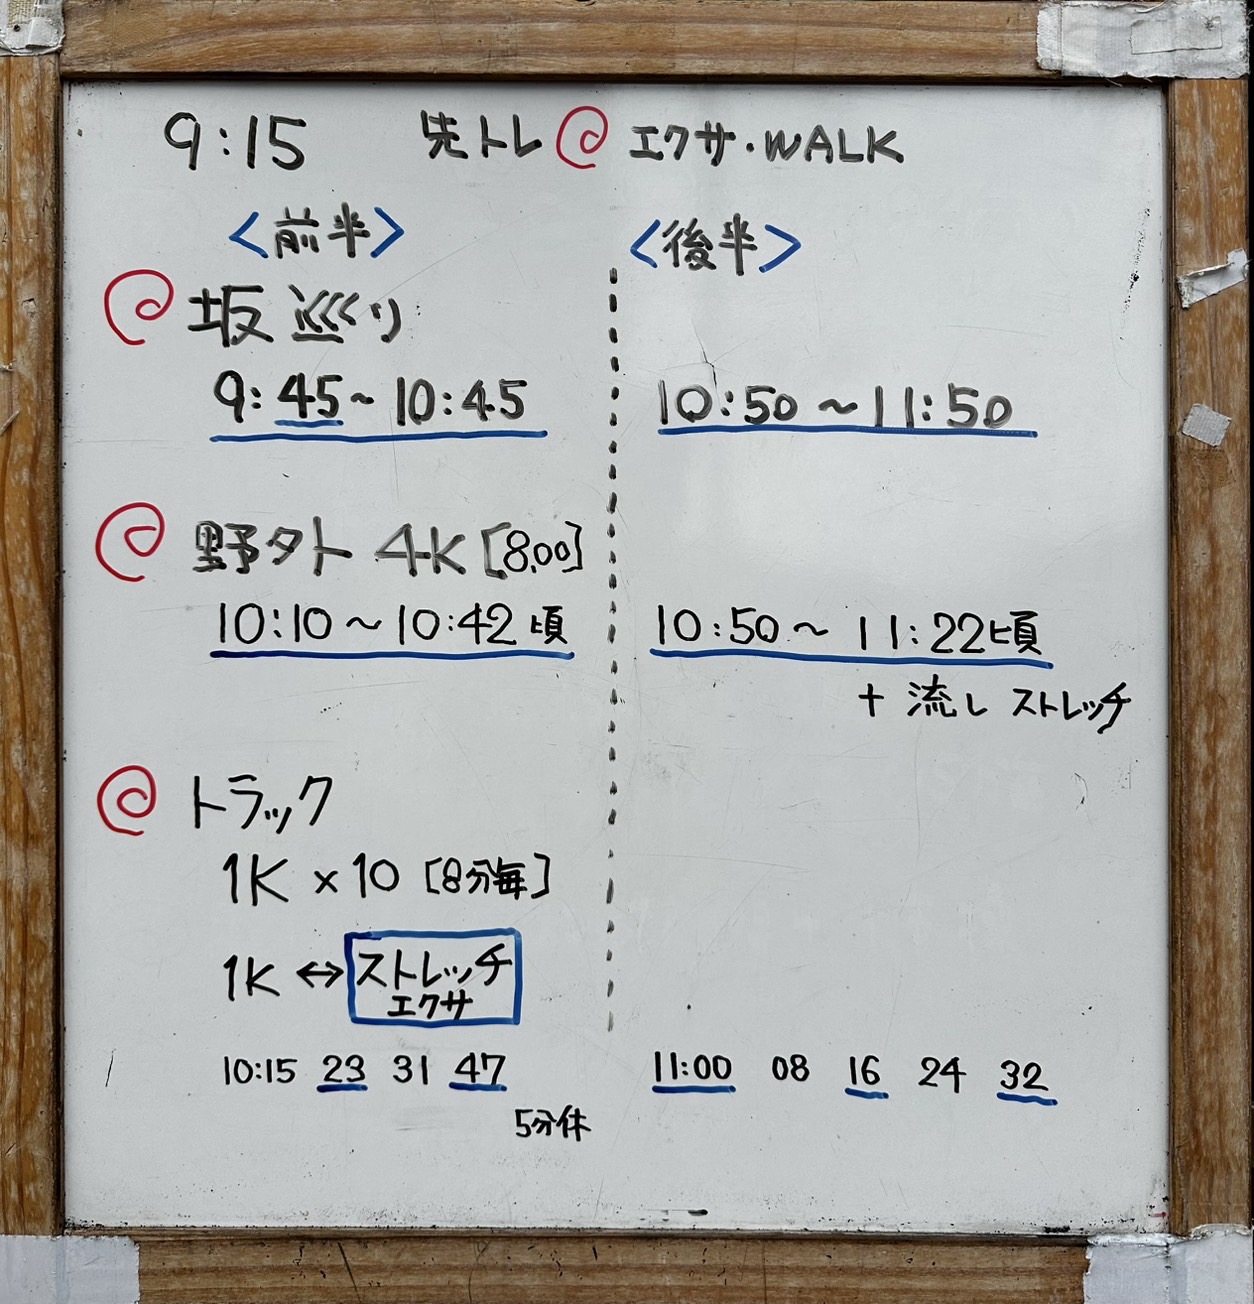 9:15 先トレ @ エクサ・WALK
<前半> <後半>
@ 坂巡り
9:45~10:45 10:50~11:50
@ 野外 4K [8.00]
10:10~10:42頃 10:50~11:22頃
+ 流し ストレッチ
@ トラック
1K × 10 [8分毎]
1K ↔ ストレッチ
エクサ
10:15 23 31 47 11:00 08 16 24 32
5分休